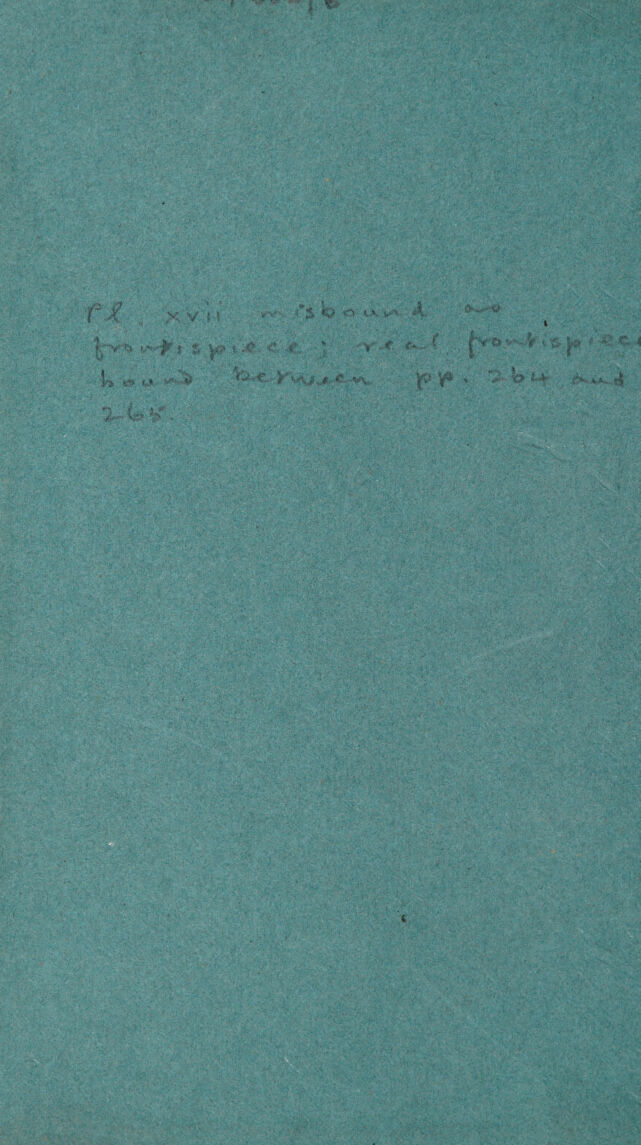 Pl. xvii misbound as
frontispiece; real frontispiece
bound between pp. 264 and
265.